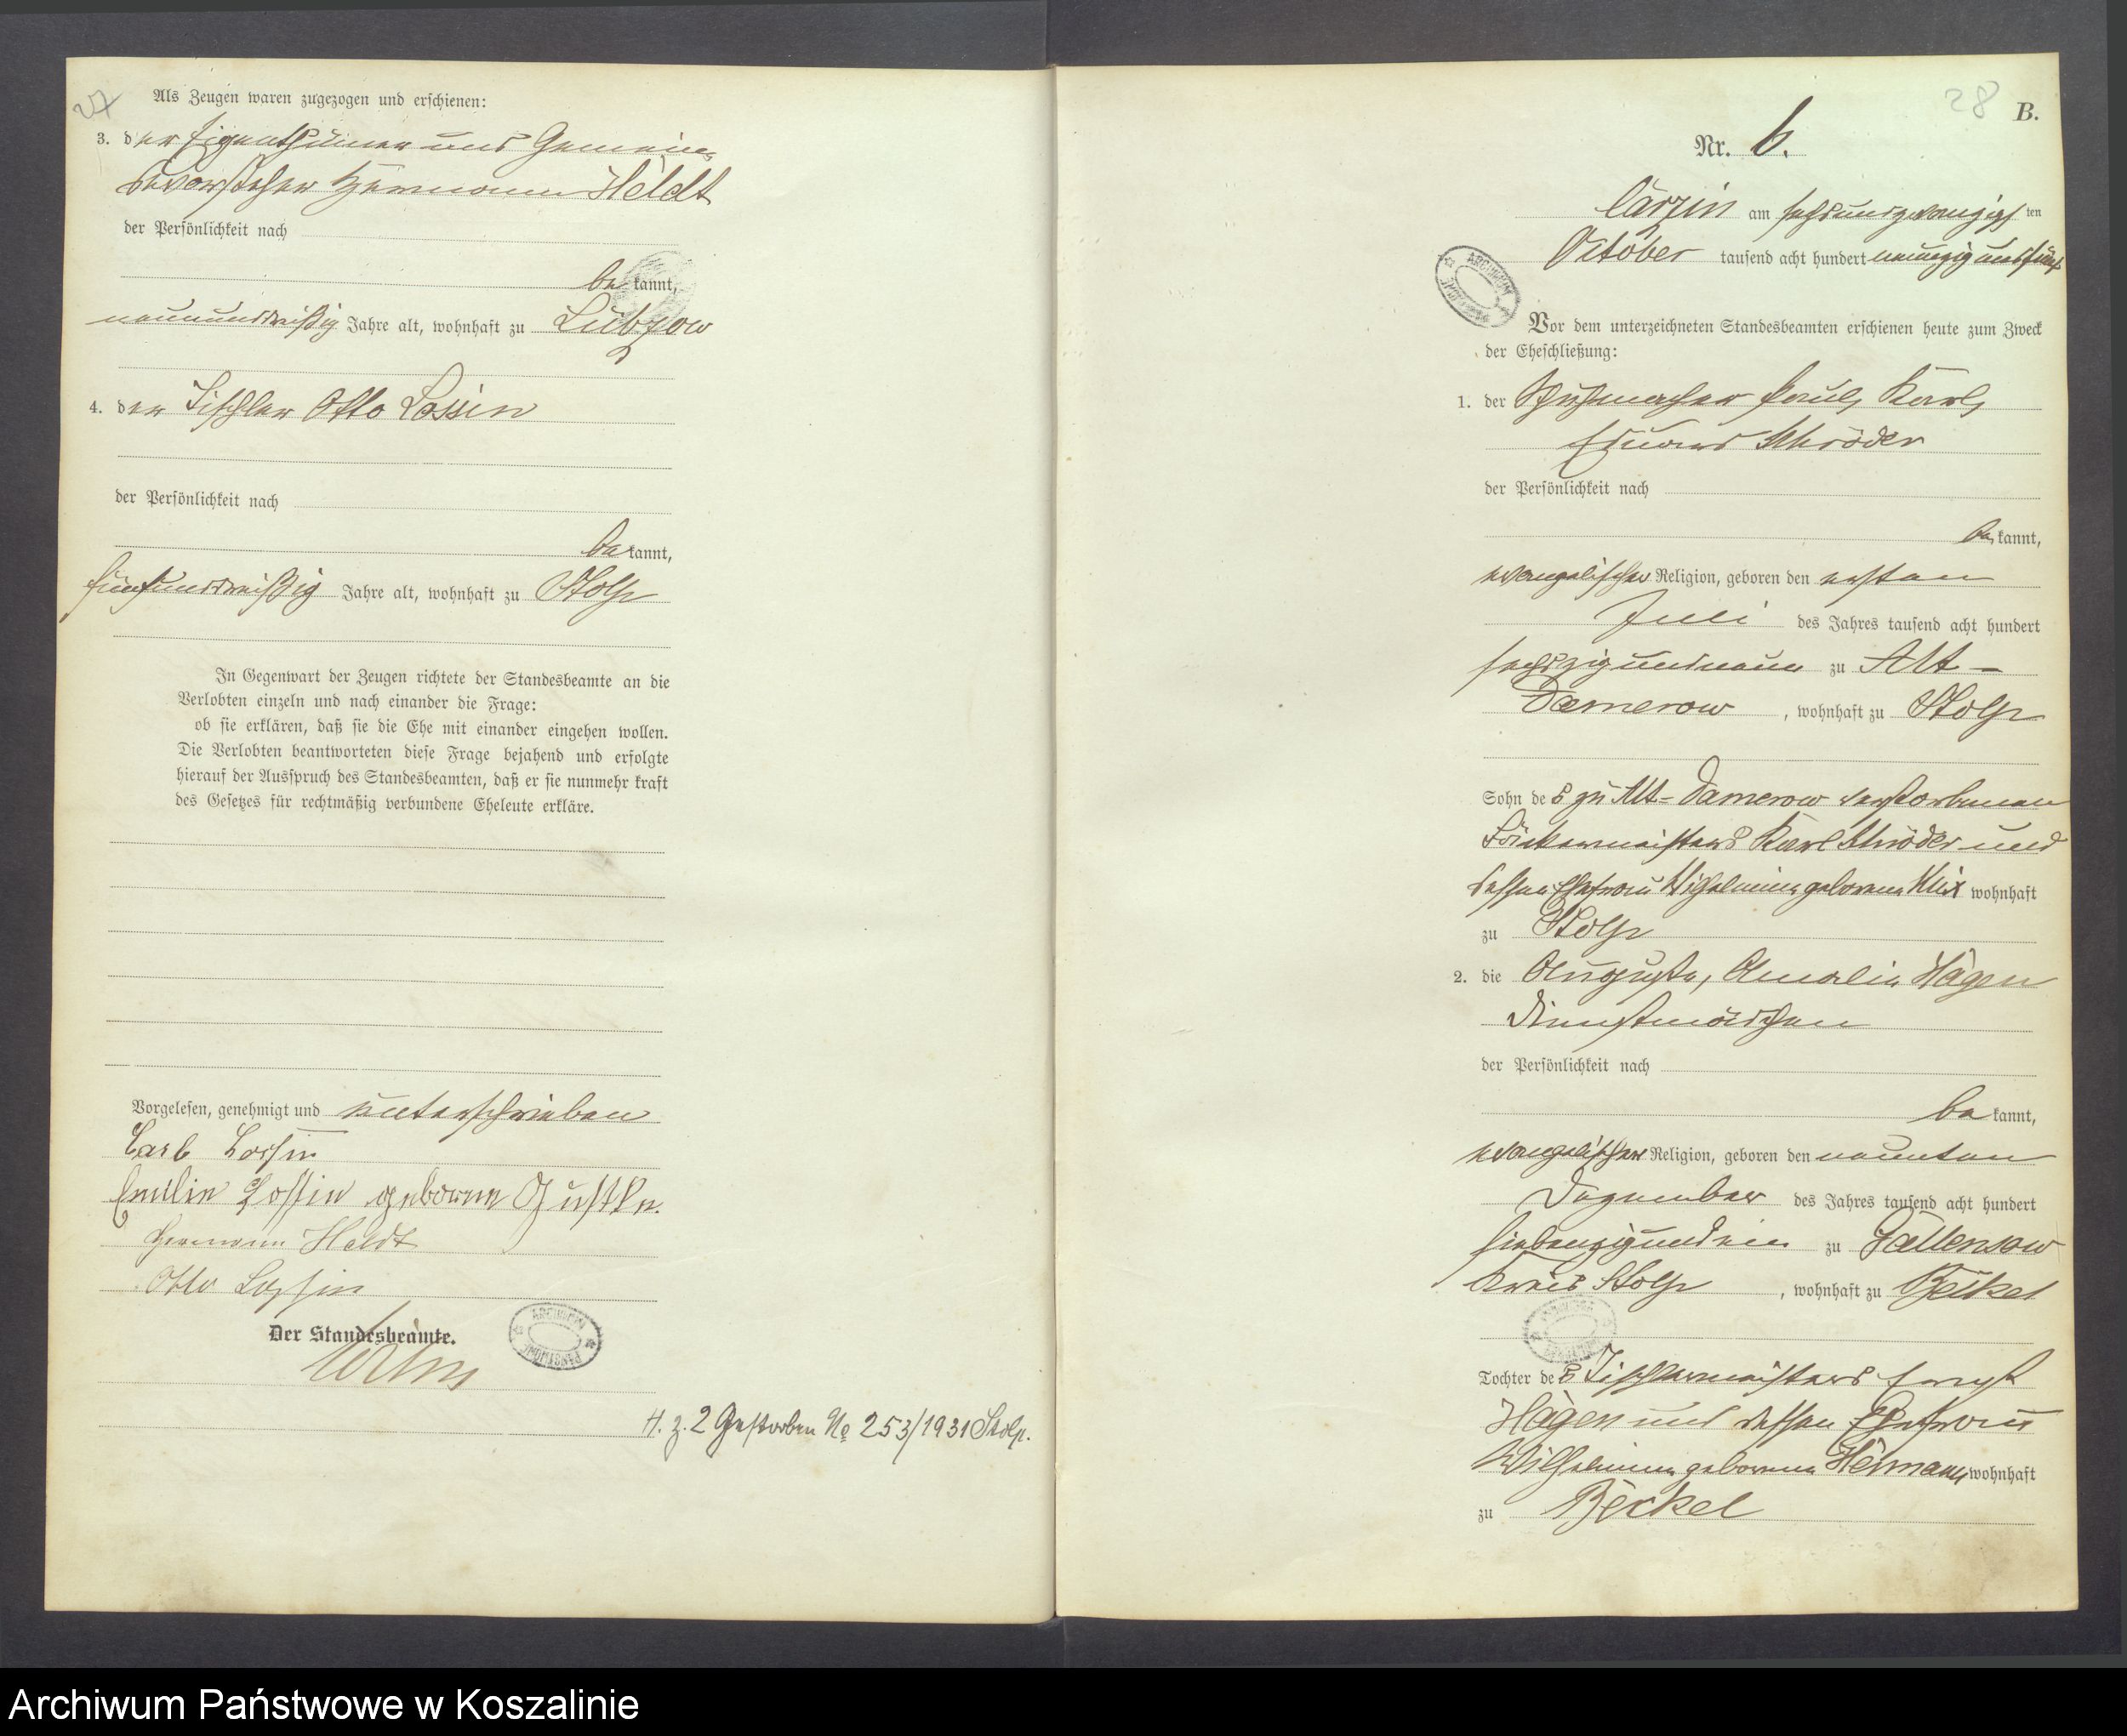 27
Als Zeugen waren zugezogen und erschienen:
3. der Eigenthümer und Gemein-
devorsteher Hermann Heldt
der Persönlichkeit nach
bekannt,
neununddreißig Jahre alt, wohnhaft zu Lübzow
4. der Tischler Otto Lossin
der Persönlichkeit nach
bekannt,
fünfunddreißig Jahre alt, wohnhaft zu Stolp
In Gegenwart der Zeugen richtete der Standesbeamte an die
Verlobten einzeln und nach einander die Frage:
ob sie erklären, daß sie die Ehe mit einander eingehen wollen.
Die Verlobten beantworteten diese Frage bejahend und erfolgte
hierauf der Ausspruch des Standesbeamten, daß er sie nunmehr kraft
des Gesetzes für rechtmäßig verbundene Eheleute erkläre.
Vorgelesen, genehmigt und unterschrieben
Carl Lossin
Emilie Lossin geborne Gustke.
Hermann Heldt
Otto Lossin
Der Standesbeamte.
ARCHIWUM PAŃSTWOWE
H. z. 2 Gestorben No 253/1931 Stolp.
28
B.
Nr. 6.
Carzin am sechsundzwanzigsten
October tausend acht hundert neunzig und fünf
ARCHIWUM
Vor dem unterzeichneten Standesbeamten erschienen heute zum Zweck
der Eheschließung:
1. der Schuhmacher Paul, Karl,
Eduard Schröder
der Persönlichkeit nach
bekannt,
evangelischer Religion, geboren den ersten
Juli des Jahres tausend acht hundert
sechszig und neun zu Alt-
Damerow, wohnhaft zu Stolp
Sohn des zu Alt-Damerow verstorbenen
Karl Schröder und
dessen Ehefrau Wilhelmine geborene Klix wohnhaft
zu Stolp
2. die Auguste, Amalie Hägen
Dienstmädchen
der Persönlichkeit nach
bekannt,
evangelischer Religion, geboren den neunten
Dezember des Jahres tausend acht hundert
siebenzig und ein zu Gallensow
Kreis Stolp, wohnhaft zu Beckel
Tochter des Tischlermeisters Ernst
Hägen und dessen Ehefrau
Wilhelmine geborene Heimann wohnhaft
zu Beckel
Archiwum Państwowe w Koszalinie